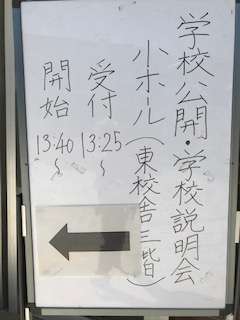 学校公開・学校説明会
小ホール(東校舎三階)
受付 13:25〜
開始 13:40〜